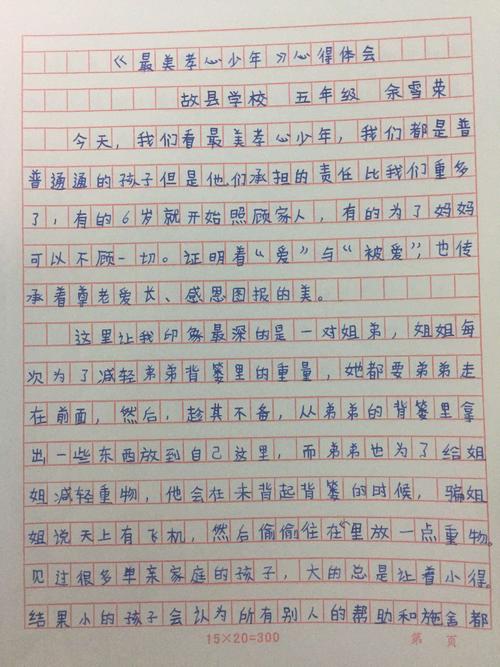 《最美孝心少年》心得体会
故县学校 五年级 余雪荣
今天,我们看最美孝心少年,我们都是普
普通通的孩子但是他们承担的责任比我们重多
了,有的6岁就开始照顾家人,有的为了妈妈
可以不顾一切。证明着“爱”与“被爱”,也传
承着尊老爱长、感思图报的美。
这里让我印象最深的是一对姐弟,姐姐每
次为了减轻弟弟背篓里的重量,她都要弟弟走
在前面,然后,趁其不备,从弟弟的背篓里拿
出一些东西放到自己这里,而弟弟也为了给姐
姐减轻重物,他会在未背起背篓的时候,骗姐
姐说天上有飞机,然后偷偷往在里放一点重物。
见过很多单亲家庭的孩子,大的总是让着小得。
结果小的孩子会认为所有别人的帮助和施舍都
15×20=300
第 页